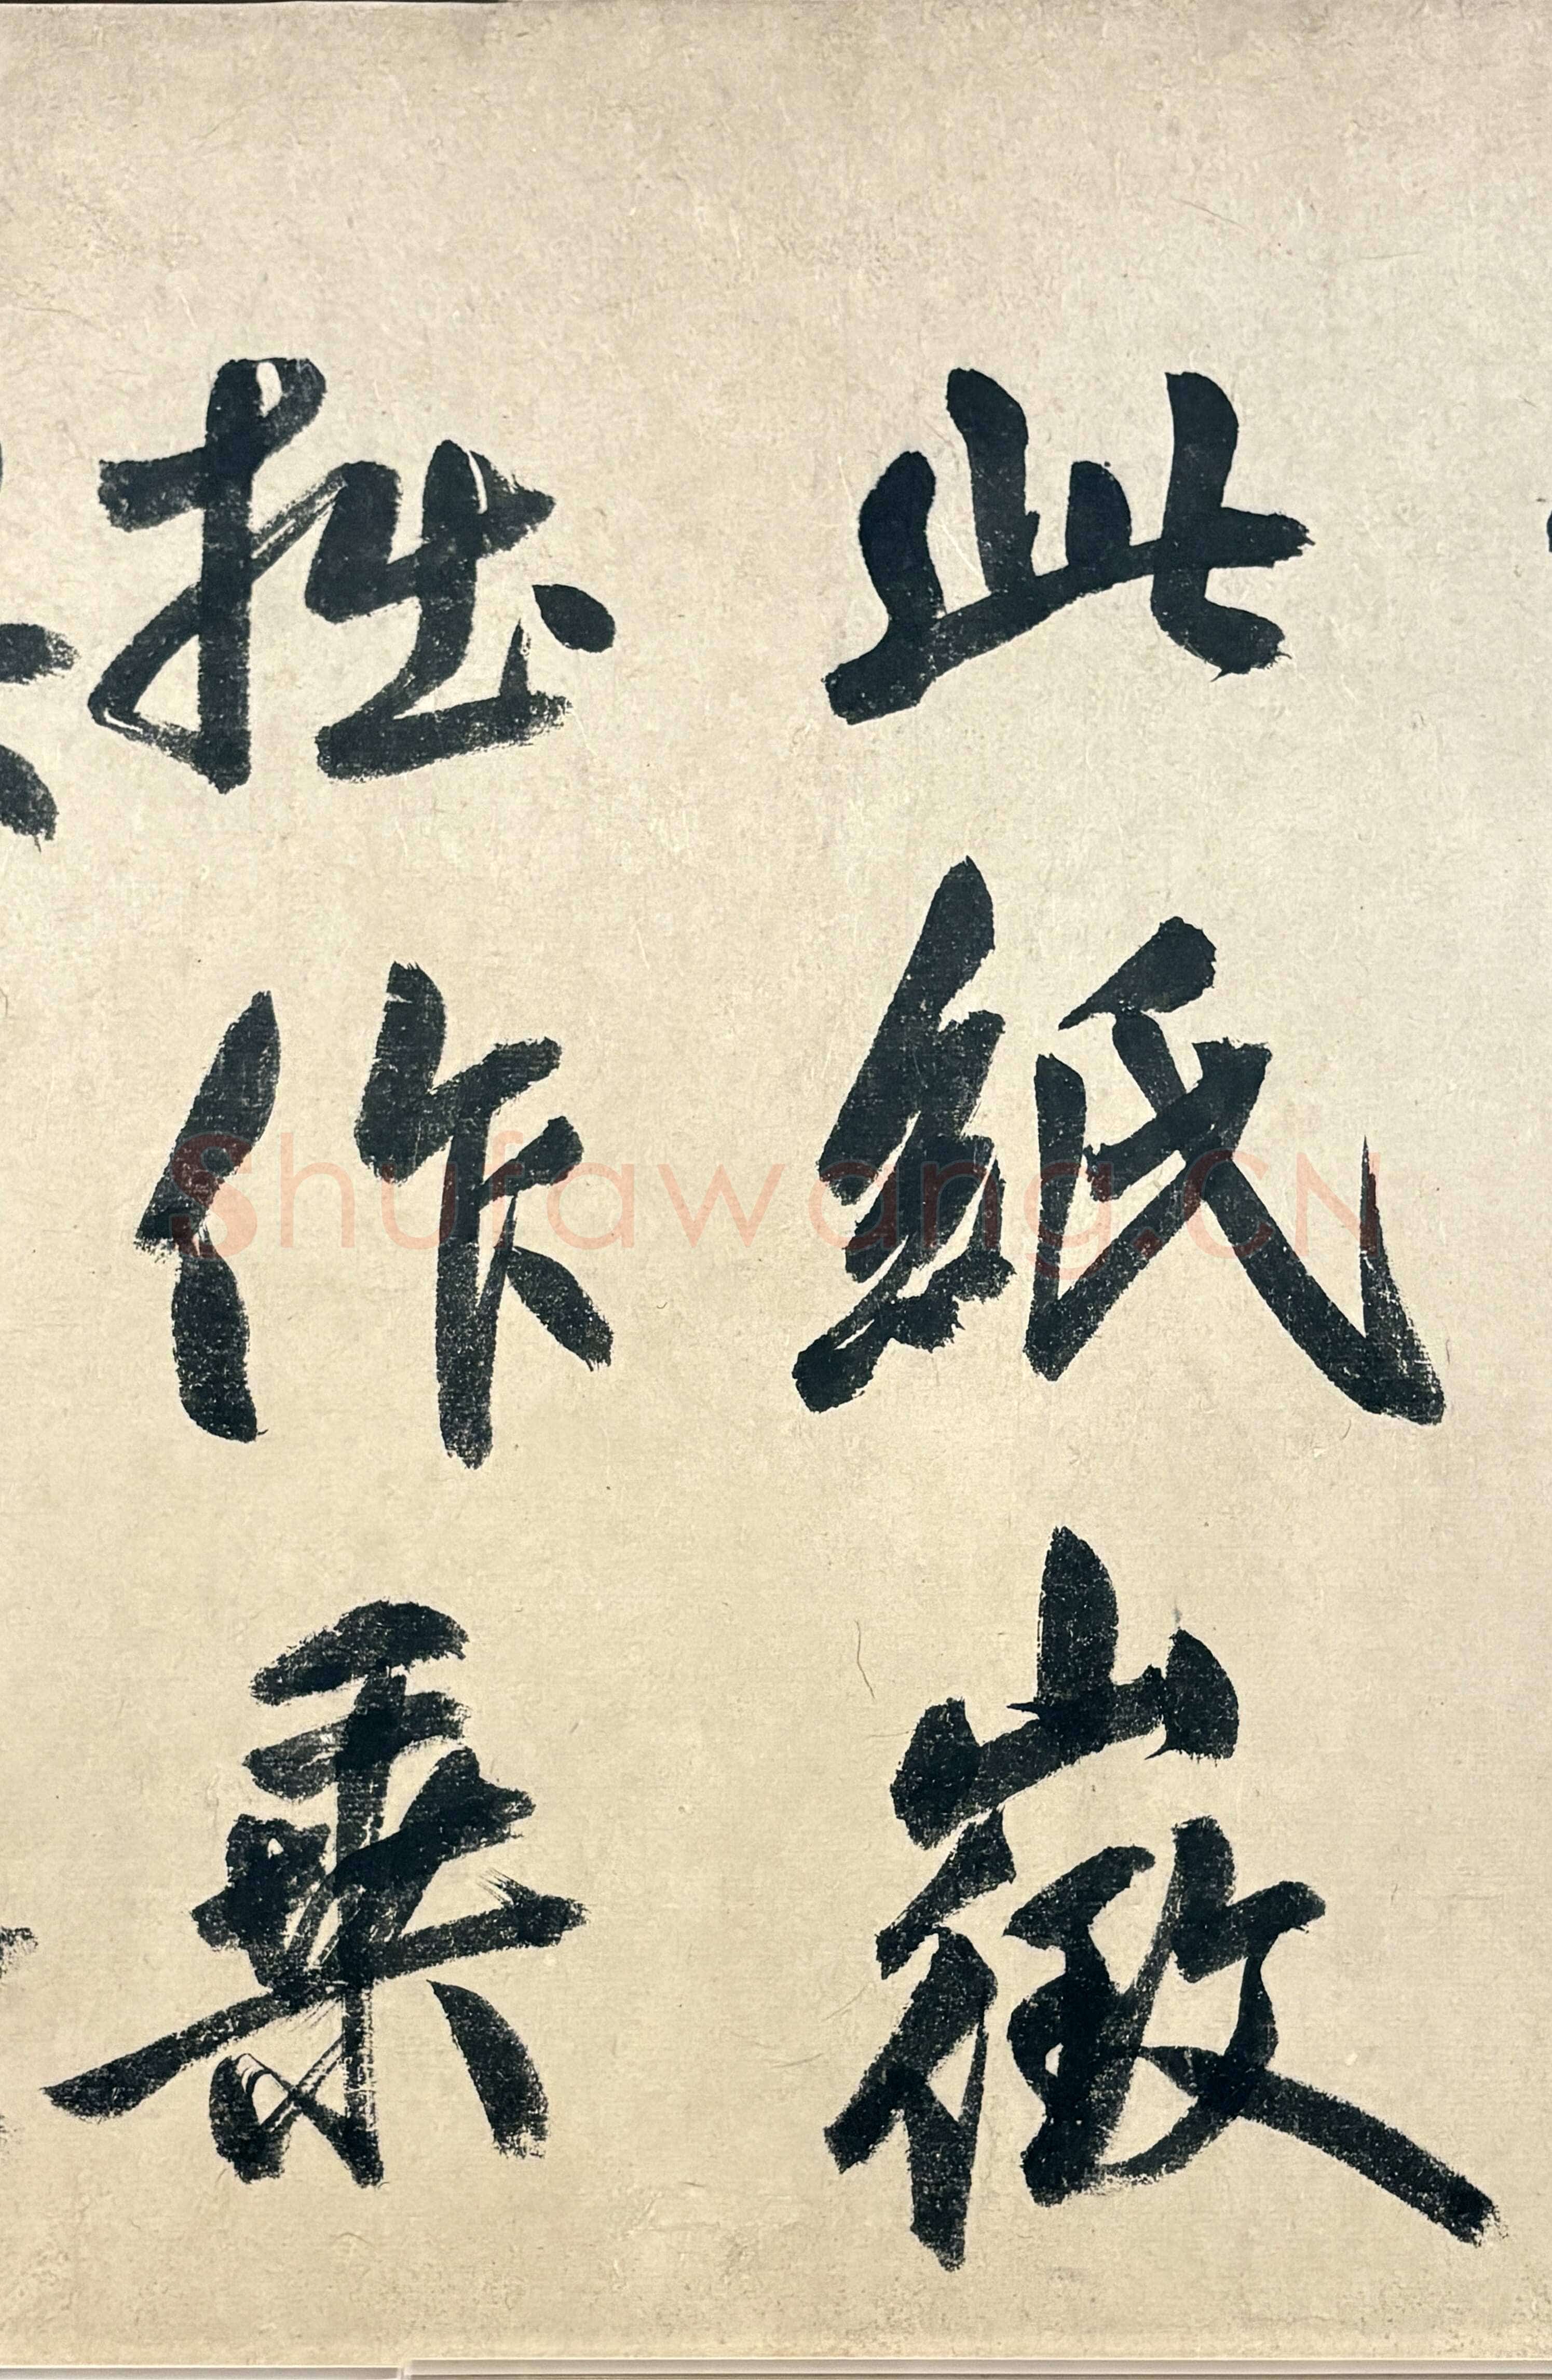 此紙徵
拙作乗
Shufawang.CN